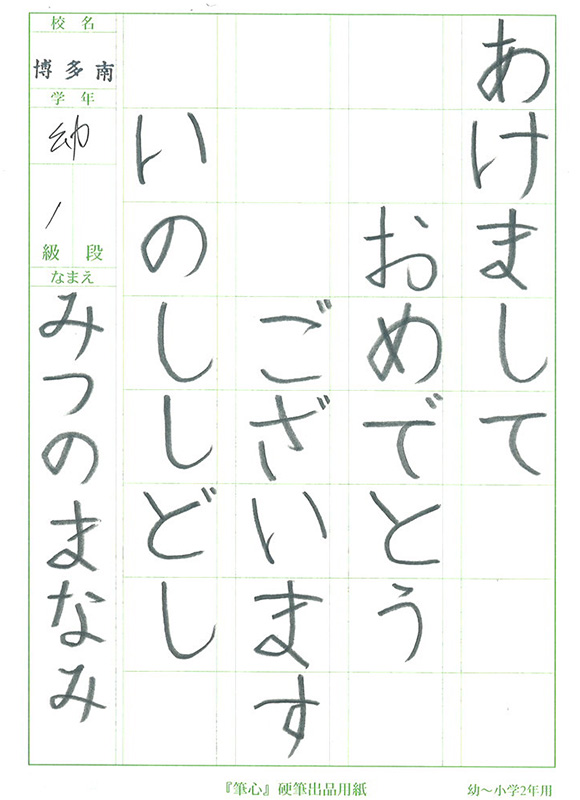 あけまして
おめでとう
ございます
いのししどし
校名
博多南
学年
幼
級段
なまえ
みつのまなみ
『筆心』硬筆出品用紙
幼～小学2年用